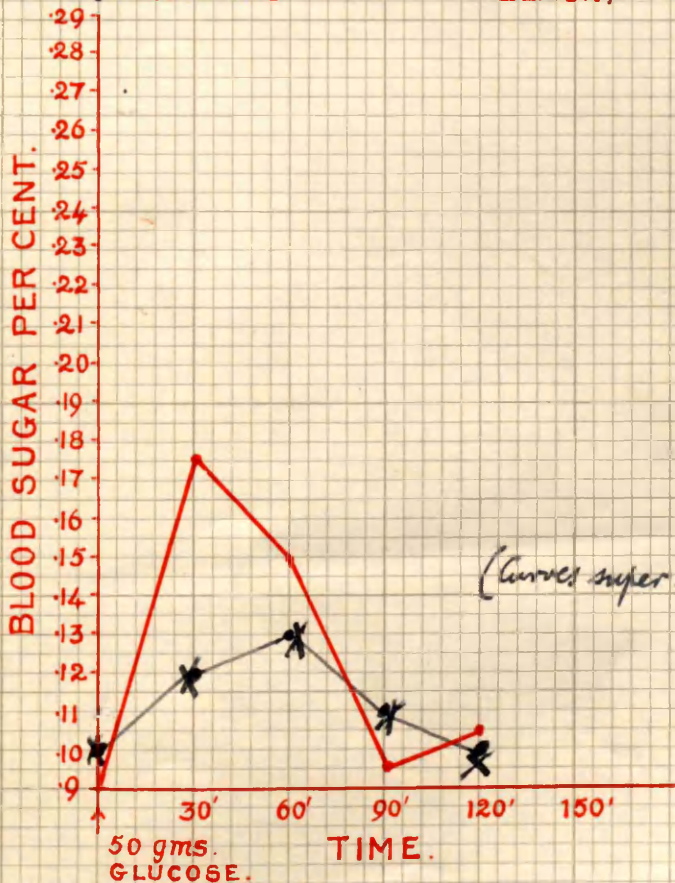 ·29
·28
·27
·26
·25
·24
·23
·22
·21
·20
·19
·18
·17
·16
·15
·14
·13
·12
·11
·10
·9
BLOOD SUGAR PER CENT.
(Curves super
30' 60' 90' 120' 150'
50 gms.
GLUCOSE.
TIME.